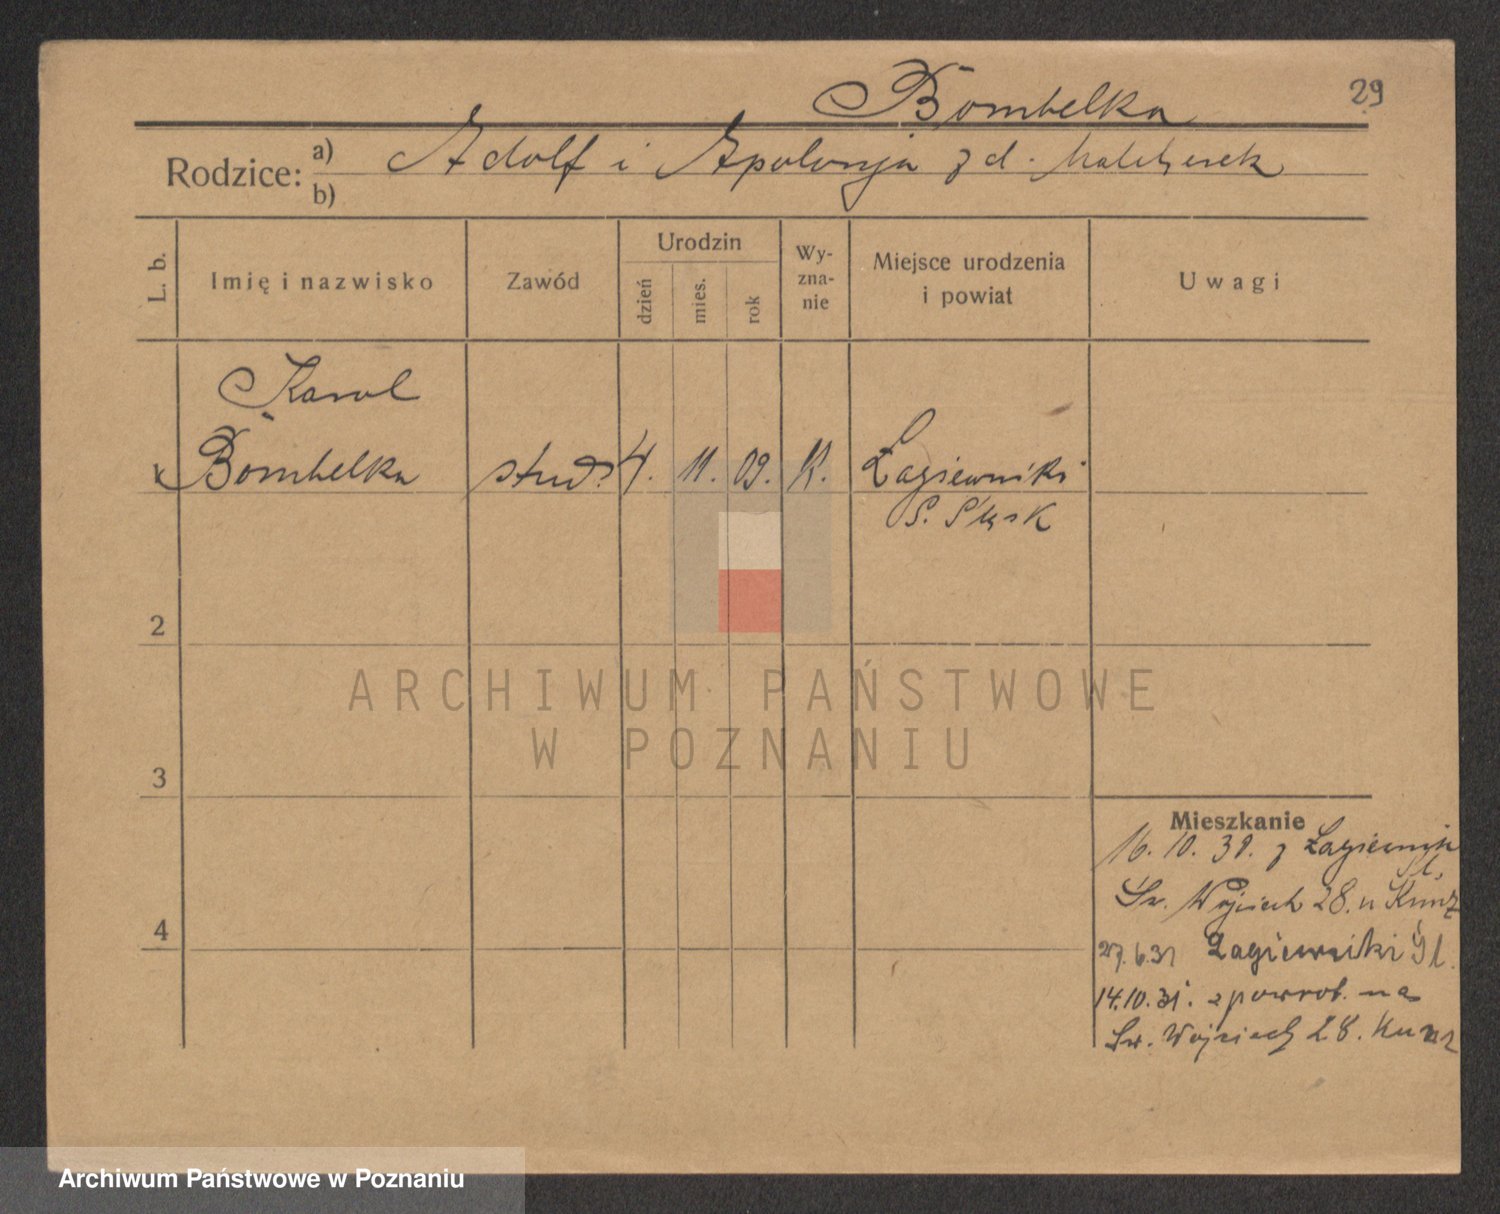 Bombelka
29
Rodzice: a) Adolf i Apolonja z d.
b)
L. b.
Imię i nazwisko
Zawód
Urodzin
dzień
mies.
rok
Wy-
zna-
nie
Miejsce urodzenia
i powiat
Uwagi
Karol
Bombelka stud. 4. 11. 09. K. Łagiewniki
G. Śląsk
2
ARCHIWUM PAŃSTWOWE
W POZNANIU
3
Mieszkanie
16. 10. 30. z Łagiewnik
Śl.
Św. Wojciech 28. u Kunz
4
27.6.31 Łagiewniki Śl.
14.10.31. z powrot. na
Św. Wojciech 28. Kunz
Archiwum Państwowe w Poznaniu